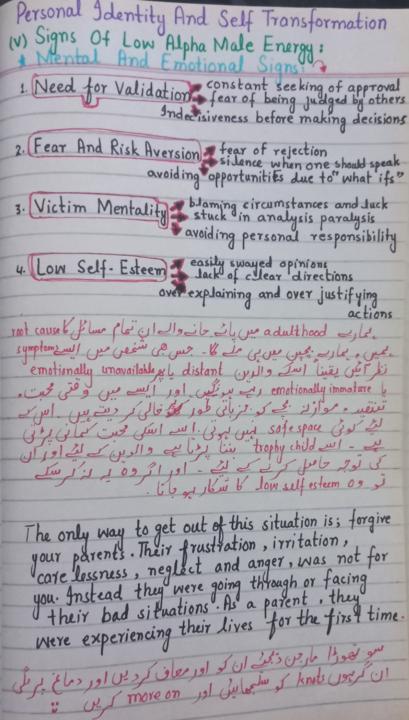 Personal Identity And Self Transformation
(v) Signs Of Low Alpha Male Energy:
* Mental And Emotional Signs:
1. Need for Validation → constant seeking of approval
→ fear of being judged by others
Indecisiveness before making decisions
2. Fear And Risk Aversion → fear of rejection
→ silence when one should speak
avoiding opportunities due to "what ifs"
3. Victim Mentality → blaming circumstances and luck
→ stuck in analysis paralysis
→ avoiding personal responsibility
4. Low Self-Esteem → easily swayed opinions
→ lack of clear directions
over explaining and over justifying
actions
ہمارے adulthood میں پائے جانے والے ان تمام مسائل کا root cause
ہمیں، ہمارے بچپن میں ہی ملے گا۔ جس بھی شخص میں ایسے symptoms
نظر آئیں یقیناً اسکے والدین distant یا پھر emotionally unavailable
یا emotionally immature رہے ہونگے اور ایسے میں وقتی محبت،
تنقید، موازنہ بچے کو جذباتی طور خالی کر دیتے ہیں۔ اس کے
لئے کوئی safe space نہیں ہوتی۔ اسے اسکی محبت کمانی پڑتی
ہے۔ اسے trophy child بننا پڑتا ہے والدین کے لئے اور ان
کی توجہ حاصل کرنے کے لئے۔ اور اگر وہ یہ نہ کر سکے
تو وہ low self esteem کا شکار ہو جاتا۔
The only way to get out of this situation is; forgive
your parents. Their frustration, irritation,
carelessness, neglect and anger, was not for
you. Instead they were going through or facing
their bad situations. As a parent, they
were experiencing their lives for the first time.
سو تھوڑا مارجن دیجئے ان کو اور معاف کر دیں اور دماغ پر لگی
ان گرہوں knots کو سلجھائیں اور move on کریں